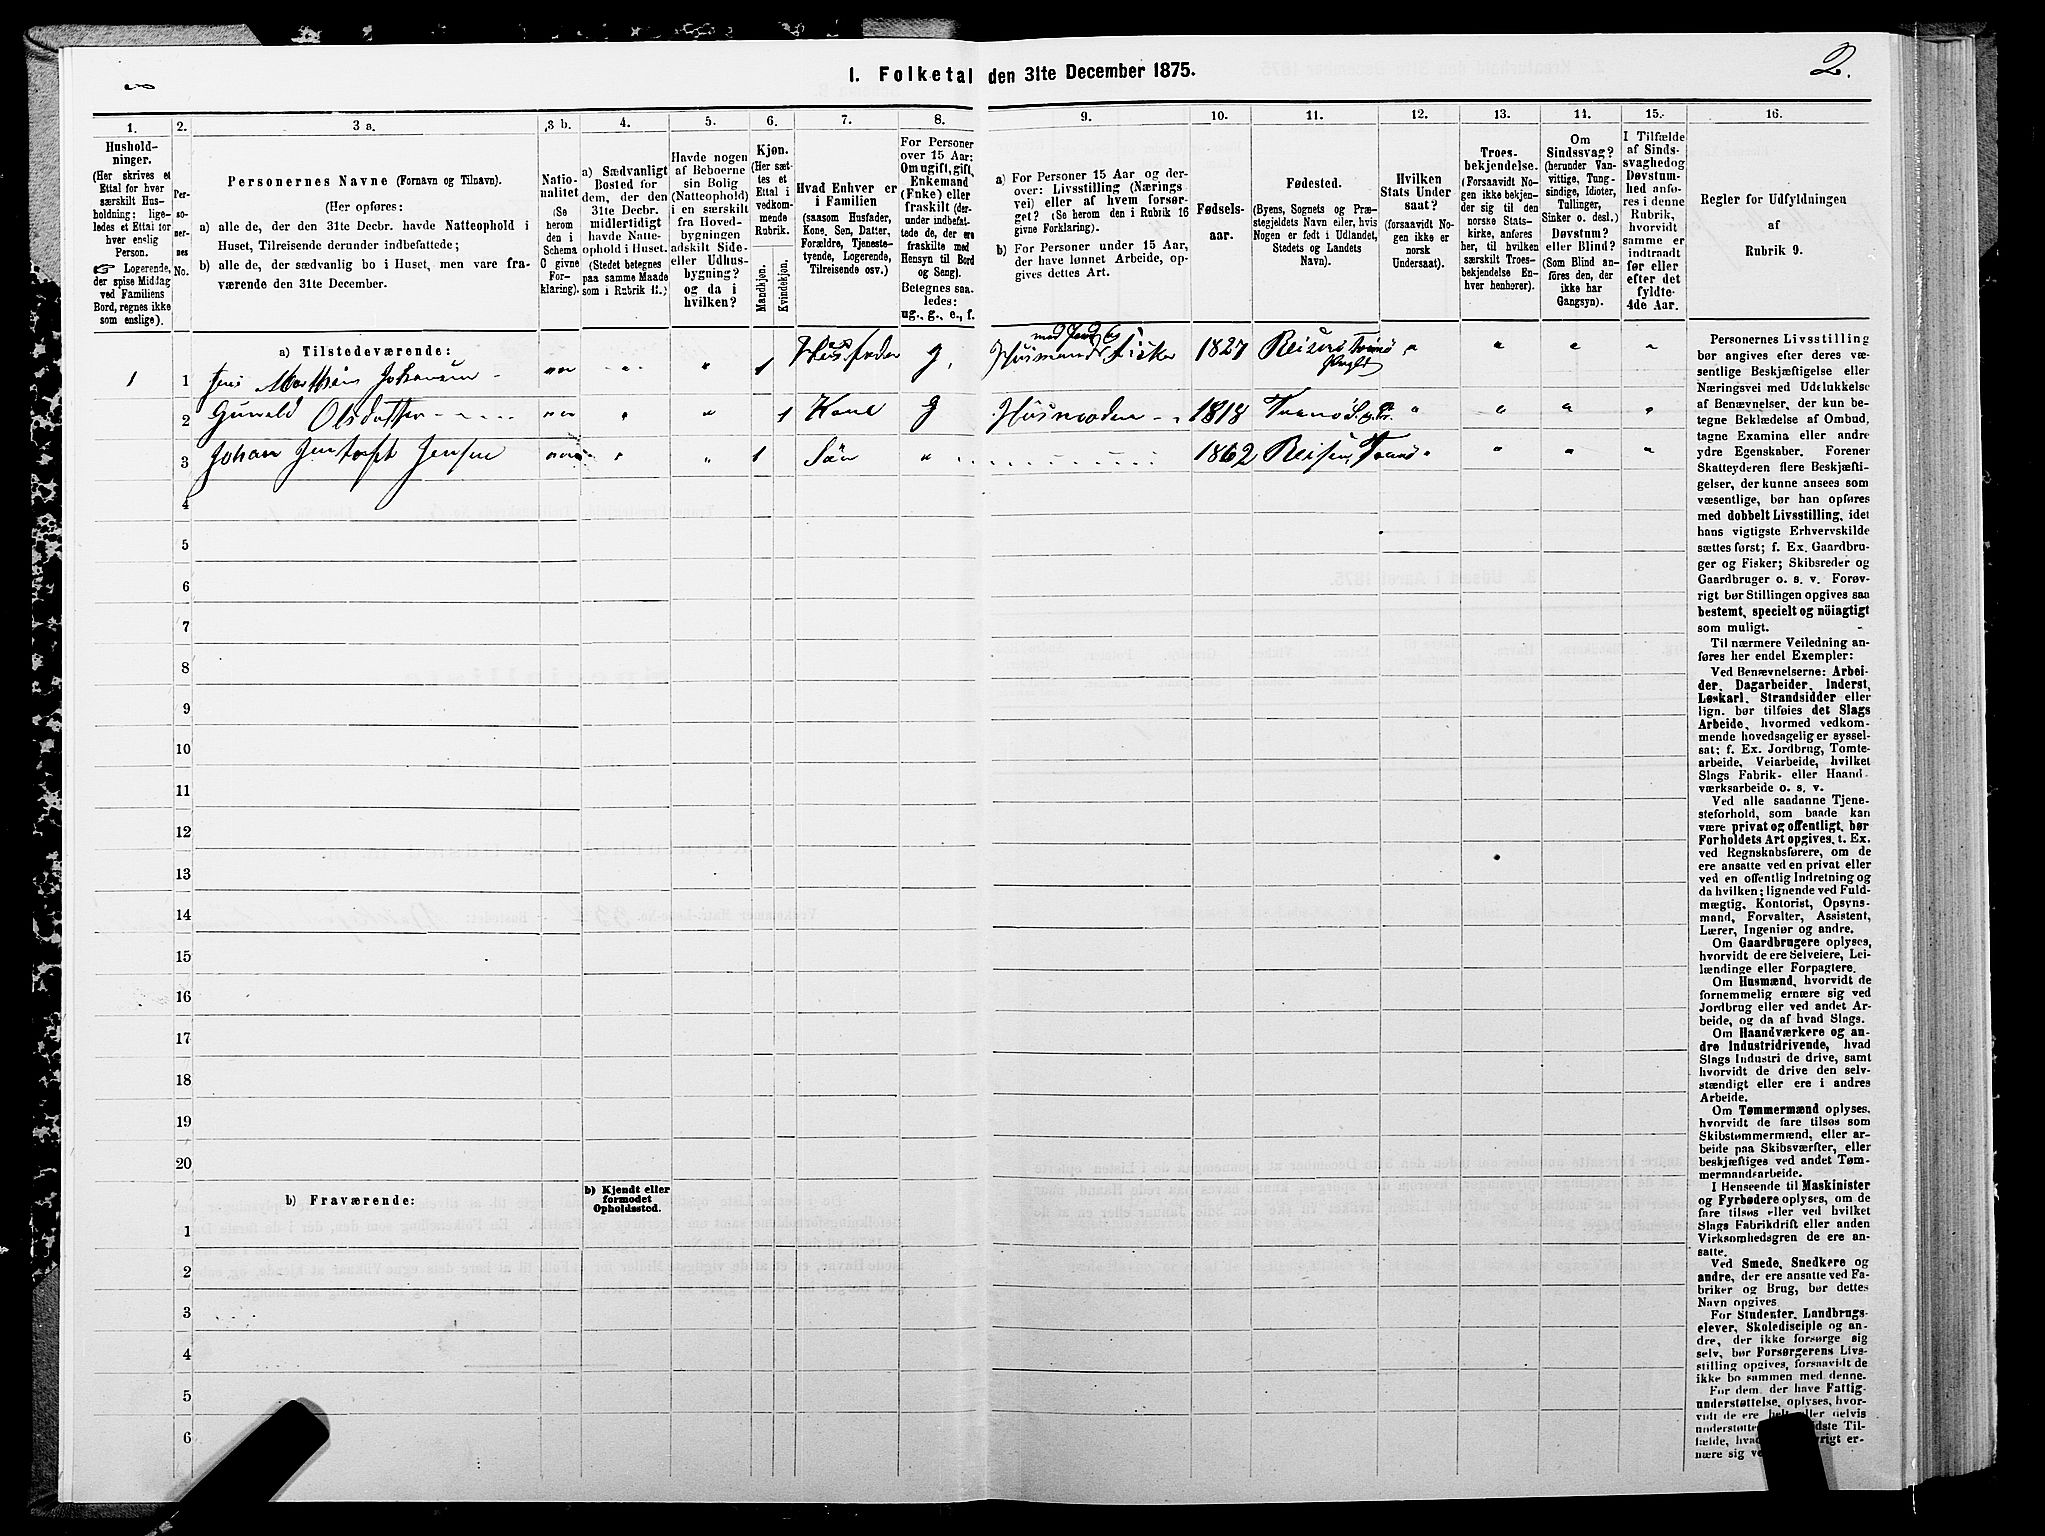 2.
I. Folketal den 31te December 1875.
1.
Husholdninger.
(Her skrives et
Ettal for hver
særskilt Husholdning; ligeledes et Ettal for
hver enslig
Person.
☞ Logerende,
der spise Middag
ved Familiens
Bord, regnes ikke
som enslige).
2.
Personernes
No.
3 a.
Personernes Navne (Fornavn og Tilnavn).
(Her opføres:
a) alle de, der den 31te Decbr. havde Natteophold i
Huset, Tilreisende derunder indbefattede;
b) alle de, der sædvanlig bo i Huset, men vare fraværende den 31te December.
3 b.
Nationalitet
(Se
herom
den i
Schema
C givne
Forklaring).
4.
a) Sædvanligt
Bosted for
dem, der den
31te Decbr.
midlertidigt
havde Natteophold i Huset.
(Stedet betegnes
paa samme Maade
som i Rubrik 11.)
5.
Havde nogen
af Beboerne
sin Bolig
(Natteophold)
i en særskilt
fra Hovedbygningen
adskilt Sideeller Udhusbygning?
og da i
hvilken?
6.
Kjøn.
(Her sættes et
Ettal i
vedkommende
Rubrik.
Mandkjøn.
Kvindekjøn.
7.
Hvad Enhver er
i Familien
(saasom Husfader,
Kone, Søn, Datter,
Forældre, Tjenestetyende, Logerende,
Tilreisende osv.)
8.
For Personer
over 15 Aar:
Om ugift, gift,
Enkemand
(Enke) eller
fraskilt (derunder indbefattede de, der ere
fraskilte med
Hensyn til Bord
og Seng).
Betegnes saaledes:
ug., g., e., f.
9.
a) For Personer 15 Aar og derover: Livsstilling (Næringsvei) eller af hvem forsørget? (Se herom den i Rubrik 16
givne Forklaring).
b) For Personer under 15 Aar,
der have lønnet Arbeide, opgives dettes Art.
10.
Fødselsaar.
11.
Fødested.
(Byens, Sognets og Præstegjeldets Navn eller, hvis
Nogen er født i Udlandet,
Stedets og Landets
Navn).
12.
Hvilken
Stats Undersaat?
(forsaavidt Nogen ikke er
norsk
Undersaat).
13.
Troesbekjendelse.
(Forsaavidt Nogen ikke bekjender sig til den
norske Statskirke, anføres
her, til hvilken
særskilt Troesbekjendelse Enhver henhører).
14.
Om
Sindssvag?
(herunder Vanvittige, Tungsindige, Idioter,
Tullinger,
Sinker o. desl.)
Døvstum?
eller Blind?
(Som Blind anføres den, der
ikke har
Gangsyn).
15.
I Tilfælde
af Sindssvaghed og
Døvstumhed anføres i denne
Rubrik,
hvorvidt
samme er
indtraadt
før eller
efter det
fyldte
4de Aar.
16.
Regler for Udfyldningen
af
Rubrik 9.
a) Tilstedeværende:
1 1 Jens Mathias Johansen - nor " " 1 Husfader g. Husmand med Jord Fisker 1827 Reisen Tromsø " " " "
2 Gunild Olsdatter nor " " 1 Kone g Husmoder 1818 " " " "
3 Johan Jentoft Jensen nor " " 1 Søn " 1862 Reisen, Tromsø " " " "
4
5
6
7
8
9
10
11
12
13
14
15
16
17
18
19
20
b) Fraværende:
b) Kjendt eller
formodet
Opholdssted.
1
2
3
4
5
6
Personernes Livsstilling
bør angives efter deres væsentlige Beskjæftigelse eller
Næringsvei med Udelukkelse
af Benævnelser, der kun betegne Beklædelse af Ombud,
tagne Examina eller andre
ydre Egenskaber. Forener
Skatteyderen flere Beskjæftigelser, der kunne ansees som
væsentlige, bør han opføres
med dobbelt Livsstilling, idet
hans vigtigste Erhvervskilde
sættes først; f. Ex. Gaardbruger og Fisker; Skibsreder og
Gaardbruger o. s. v. Forøvrigt bør Stillingen opgives saa
bestemt, specielt og nöiagtigt
som muligt.
Til nærmere Veiledning anføres her endel Exempler:
Ved Benævnelserne: Arbeider, Dagarbeider, Inderst,
Løskarl, Strandsidder eller
lign. bør tilføies det Slags
Arbeide, hvormed vedkommende hovedsagelig er sysselsat; f. Ex. Jordbrug, Tomtearbeide, Veiarbeide, hvilket
Slags Fabrik- eller Haandværksarbeide o. s. v.
Ved alle saadanne Tjenesteforhold, som baade kan
være privat og offentligt, bør
Forholdets Art opgives, t. Ex.
ved Regnskabsførere, om de
ere ansatte ved en privat eller
ved en offentlig Indretning og
da hvilken; lignende ved Fuldmægtig, Kontorist, Opsynsmand, Forvalter, Assistent,
Lærer, Ingeniør og andre.
Om Gaardbrugere oplyses,
hvorvidt de ere Selveiere, Leilændinge eller Forpagtere.
Om Husmænd, hvorvidt de
fornemmelig ernære sig ved
Jordbrug eller ved andet Arbeide, og da af hvad Slags.
Om Haandværkere og andre Industridrivende, hvad
Slags Industri de drive, samt
hvorvidt de drive den selvstændigt eller ere i andres
Arbeide.
Om Tømmermænd oplyses,
hvorvidt de fare tilsøs som
Skibstømmermænd, eller arbeide paa Skibsværfter, eller
beskjæftiges ved andet Tømmermandsarbeide.
I Henseende til Maskinister
og Fyrbødere oplyses, om de
fare tilsøs eller ved hvilket
Slags Fabrikdrift eller anden
Virksomhedsgren de ere ansatte.
Ved Smede, Snedkere og
andre, der ere ansatte ved Fabriker og Brug, bør dettes
Navn opgives
For Studenter, Landbrugselever, Skoledisciple og andre, der ikke forsørge sig
selv, bør Forsørgerens Livsstilling opgives, forsaavidt de
ikke bo sammen med denne.
For dem, der have Fattigunderstøttelse, oplyses, hvorvidt de ere helt eller delvis